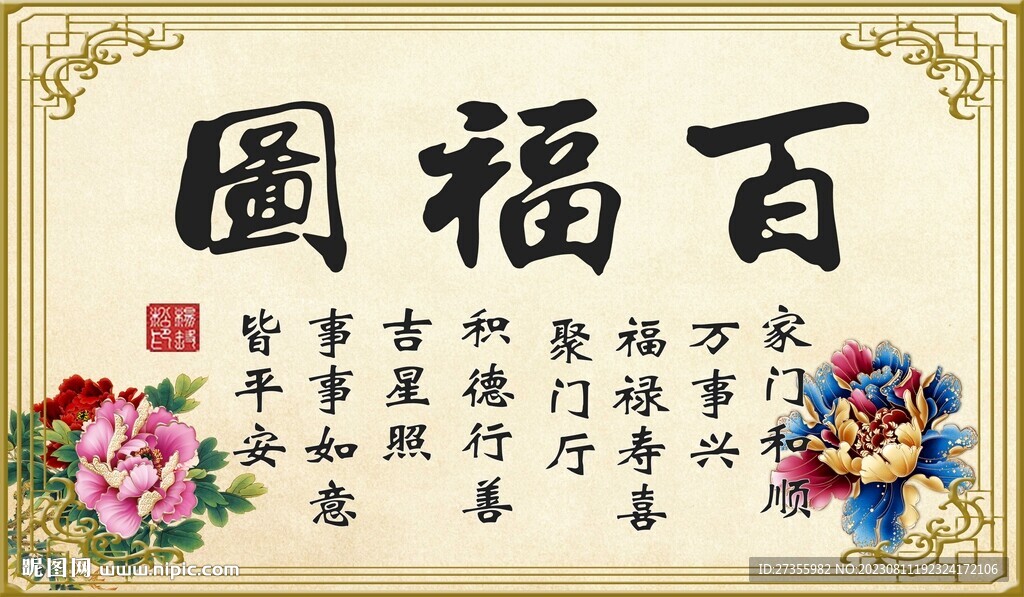 百福圖
家门和顺
万事兴
福禄寿喜
聚门厅
积德行善
吉星照
事事如意
皆平安
昵图网 www.nipic.com
ID:27355982 NO.20230811192324172106